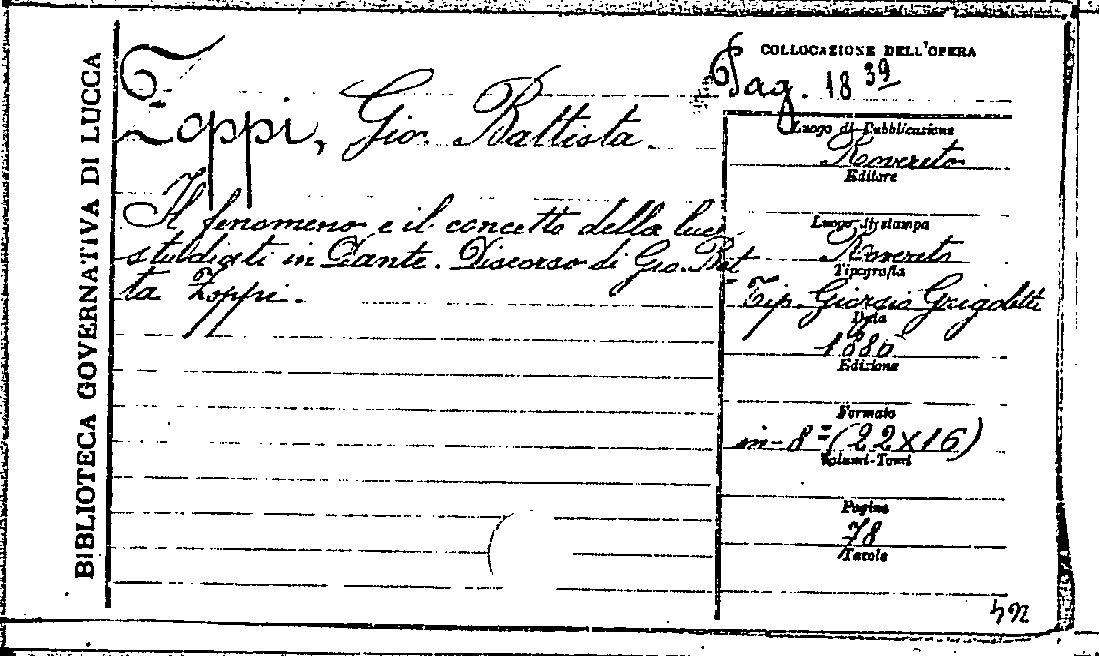 BIBLIOTECA GOVERNATIVA DI LUCCA
Zoppi, Gio. Battista.
Il fenomeno e il concetto della luce
studiati in Dante. Discorso di Gio. Bat
ta Zoppi.
COLLOCAZIONE DELL'OPERA
Pag. 18 39
Luogo di Pubblicazione
Rovereto
Editore
Luogo di stampa
Rovereto
Tipografia
Tip. Giorgio Grigoletti
Data
1886
Edizione
Formato
in-8º (22x16)
Volumi-Tomi
Pagine
78
Tavole